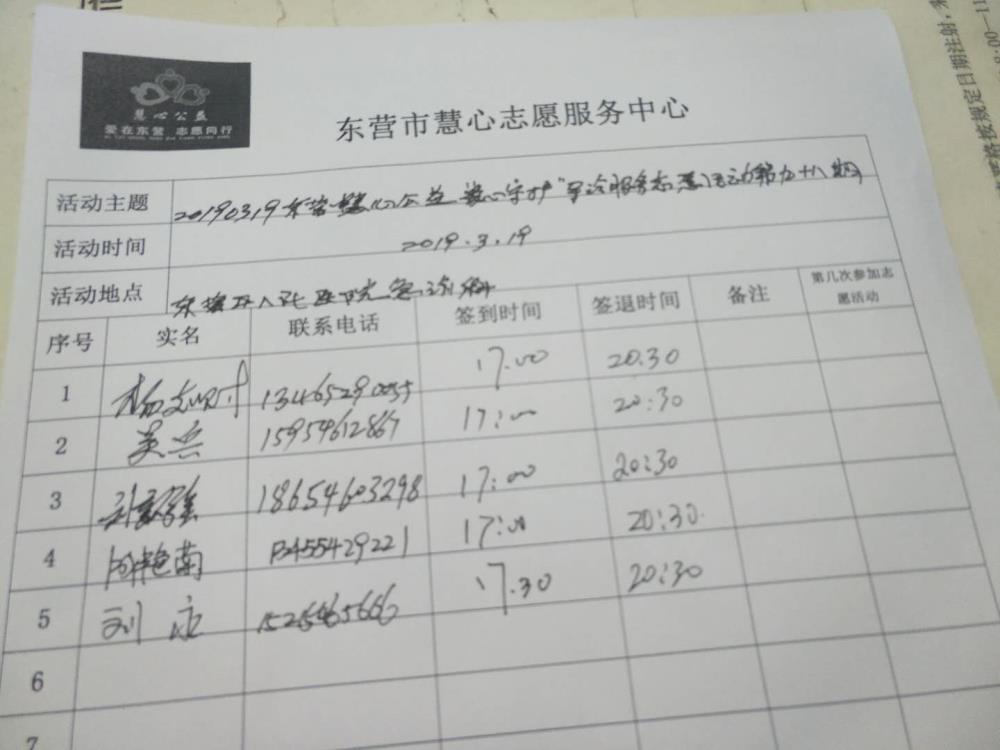 慧心公益
爱在东营 志愿同行
东营市慧心志愿服务中心
活动主题 20190319东营慧心公益 导诊服务志愿活动第九十八期
活动时间 2019.3.19
活动地点 东营区人民医院急诊科
序号 实名 联系电话 签到时间 签退时间 备注 第几次参加志愿活动
1 17.00 20.30
2 吴兵 15954612867 17:00 20:30
3 18654603298 17:00 20:30
4 17:00 20:30
5 刘永 17.30 20:30
6
7
严格按规定日期注射
8:00—11